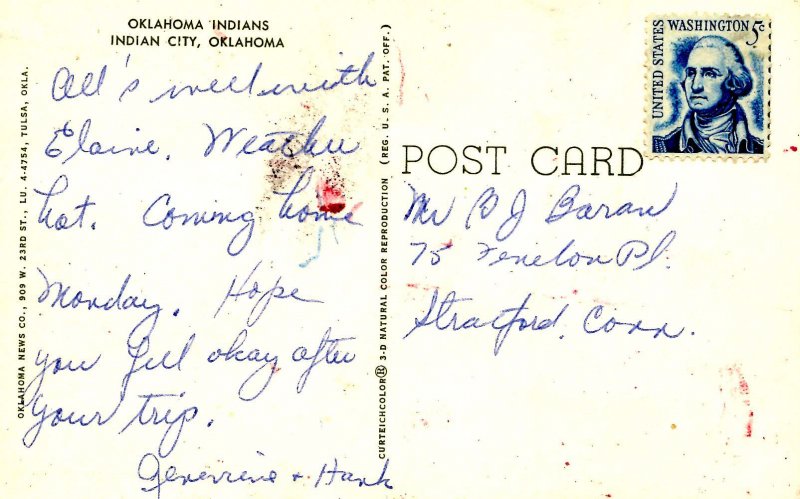 OKLAHOMA INDIANS
INDIAN CITY, OKLAHOMA
All's well with
Elaine. Weather
hot. Coming home
Monday. Hope
you feel okay after
your trip.
Genevieve + Hank
OKLAHOMA NEWS CO., 909 W. 23RD ST., LU. 4-4754, TULSA, OKLA.
CURTEICHCOLOR® 3-D NATURAL COLOR REPRODUCTION (REG. U. S. A. PAT. OFF.)
POST CARD
UNITED STATES
WASHINGTON 5c
Mr B J Baran
75 Fenelon Pl.
Stratford, Conn.